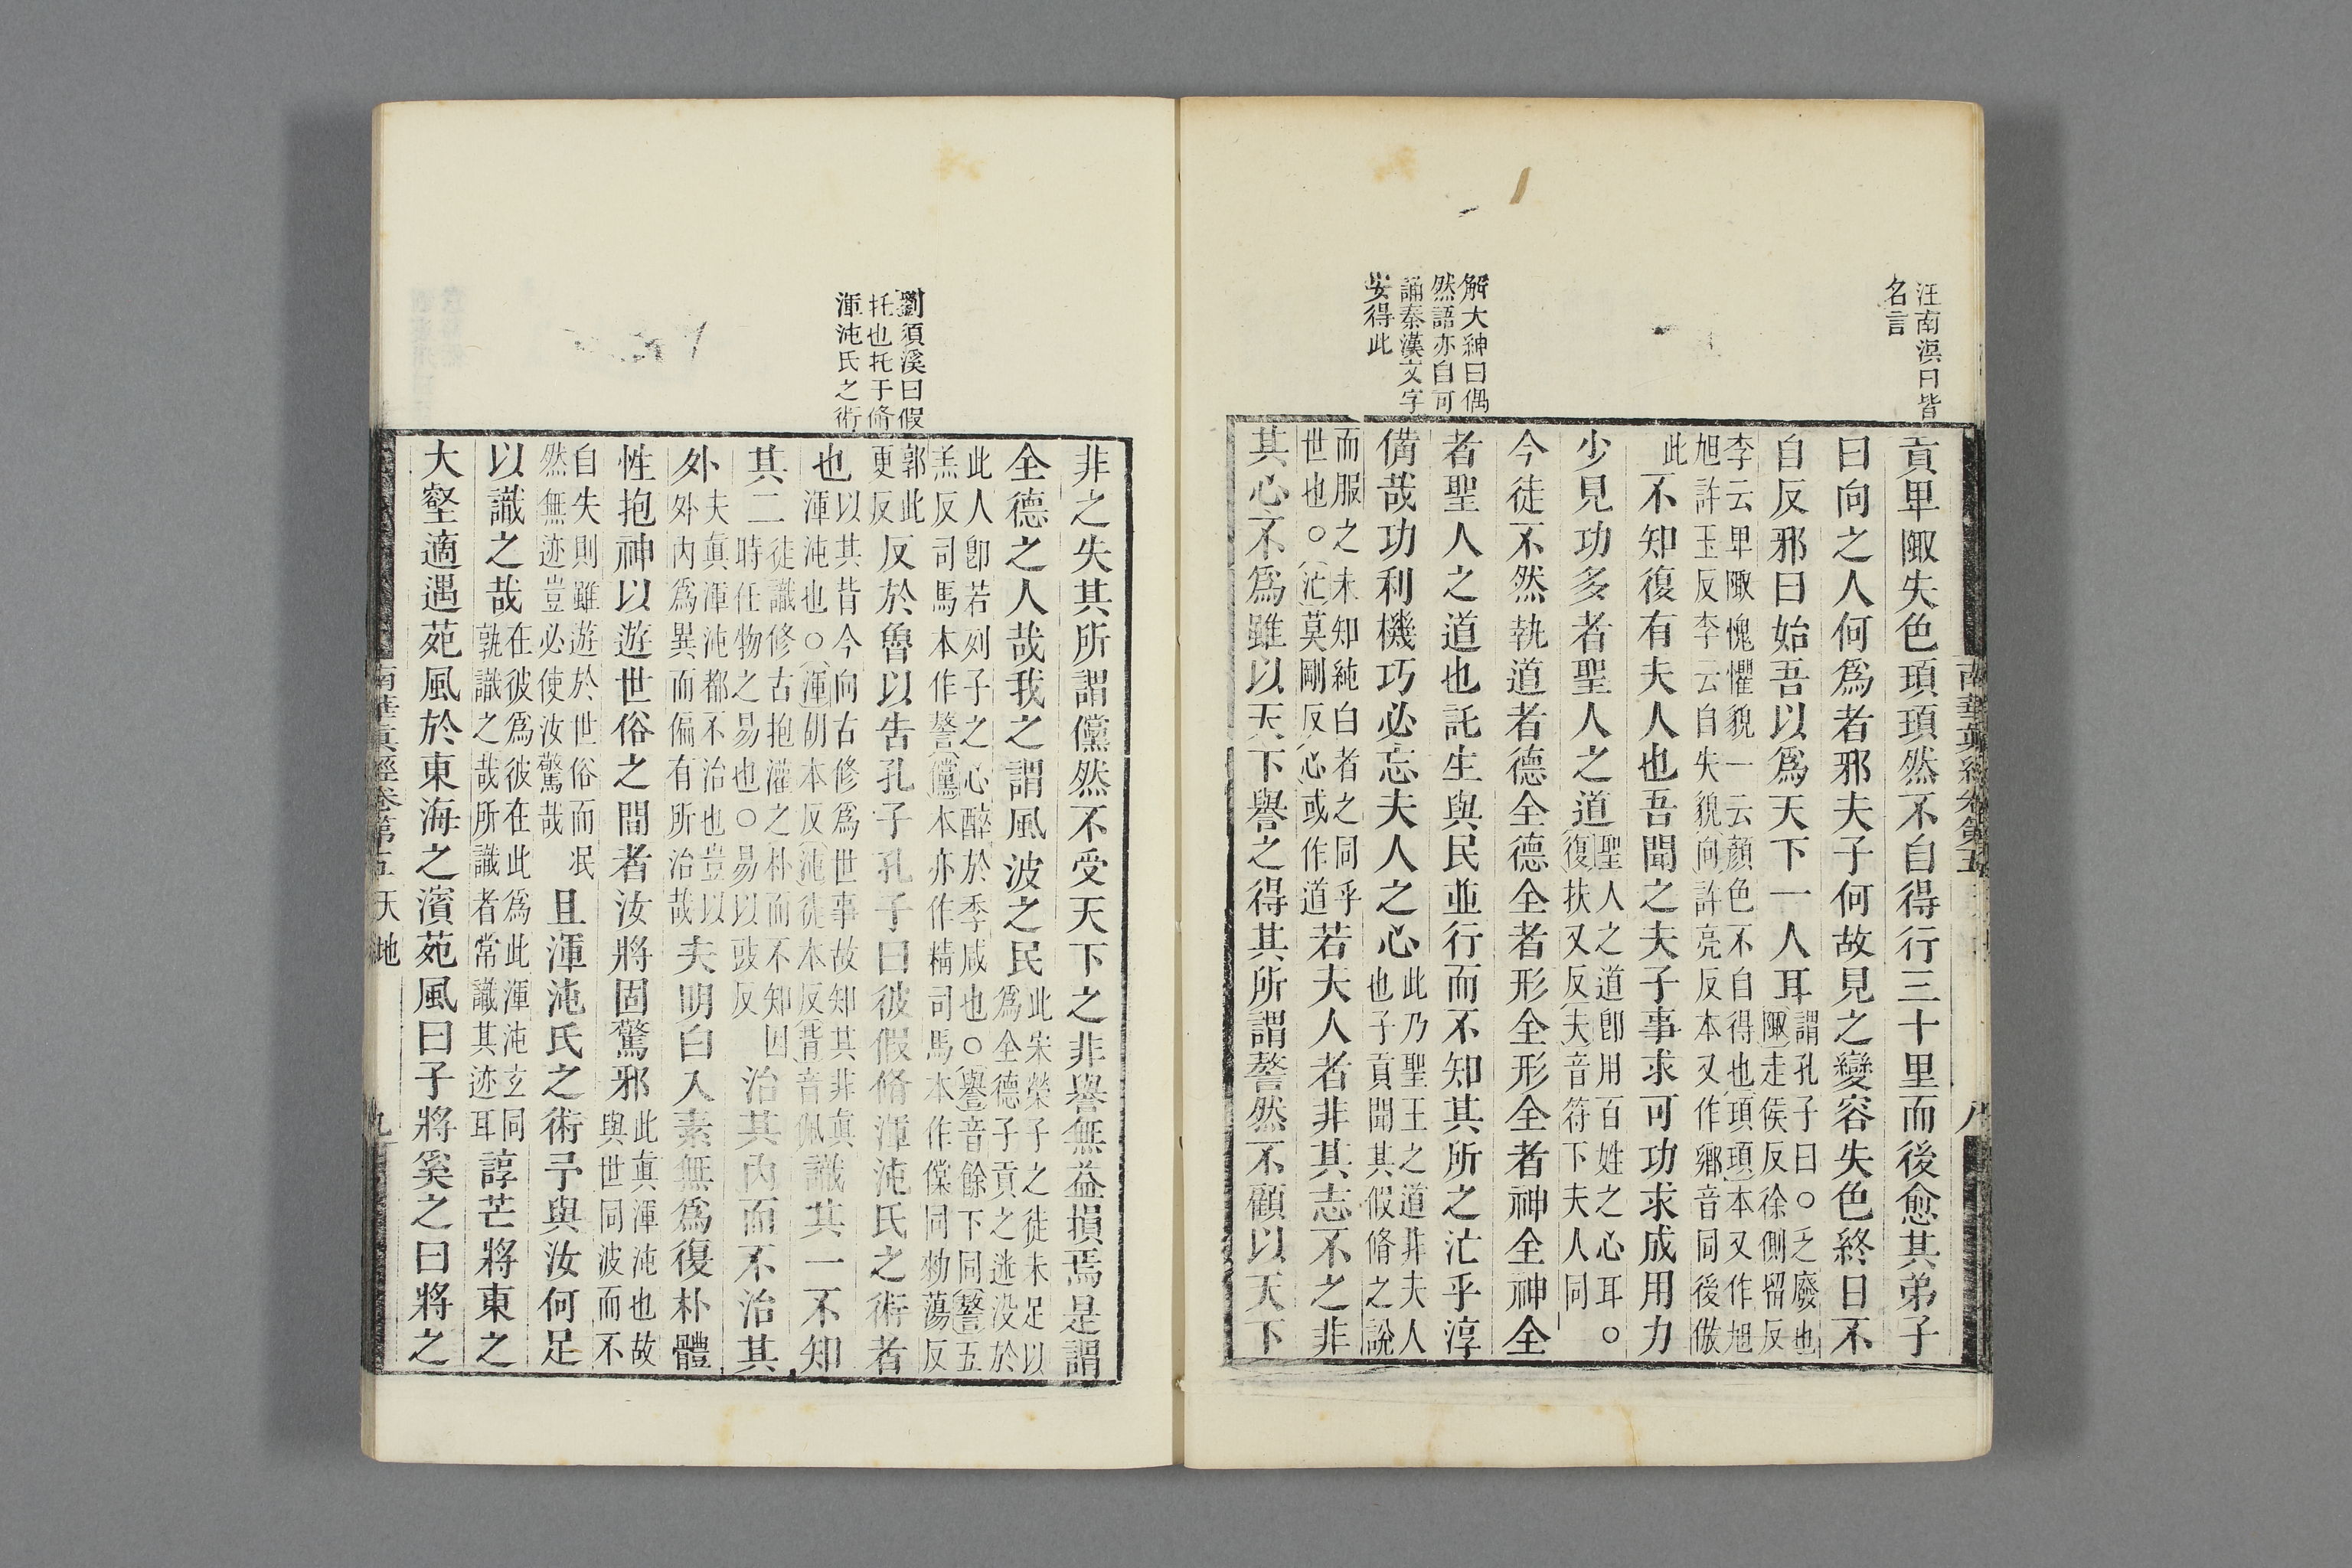 汪南溟曰皆
名言
解大紳曰偶
然語亦自可
誦秦漢文字
安得此
南華真經卷第五
八
貢卑陬失色頊頊然不自得行三十里而後愈其弟子
曰向之人何爲者邪夫子何故見之變容失色終日不
自反邪曰始吾以爲天下一人耳謂孔子曰○乏廢也
陬走侯反徐側留反
李云卑陬愧懼貌一云顔色不自得也頊頊本又作旭
旭許玉反李云自失貌向許亮反本又作鄉音同後倣
此
不知復有夫人也吾聞之夫子事求可功求成用力
少見功多者聖人之道聖人之道卽用百姓之心耳○
復扶又反夫音符下夫人同
今徒不然執道者德全德全者形全形全者神全神全
者聖人之道也託生與民並行而不知其所之汒乎淳
備哉功利機巧必忘夫人之心此乃聖王之道非夫人
也子貢聞其假脩之說
而服之未知純白者之同乎
世也○汒莫剛反心或作道
若夫人者非其志不之非
其心不爲雖以天下譽之得其所謂謷然不顧以天下
劉須溪曰假
托也托于脩
渾沌氏之術
非之失其所謂儻然不受天下之非譽無益損焉是謂
全德之人哉我之謂風波之民此宋榮子之徒未足以
爲全德子貢之迷没於
此人卽若列子之心醉於季咸也○譽音餘下同謷五
羔反司馬本作謷儻本亦作𥊀司馬本作儻同勑蕩反
郭此
更反
反於魯以告孔子孔子曰彼假脩渾沌氏之術者
也以其背今向古修爲世事故知其非真
渾沌也○渾胡本反沌徒本反背音佩
識其一不知
其二徒識修古抱灌之朴而不知因
時任物之易也○易以豉反
治其內而不治其
外夫真渾沌都不治也豈以
外內爲異而偏有所治哉
夫明白入素無爲復朴體
性抱神以遊世俗之間者汝將固驚邪此真渾沌也故
與世同波而不
自失則雖遊於世俗而泯
然無迹豈必使汝驚哉
且渾沌氏之術予與汝何足
以識之哉在彼爲彼在此爲此渾沌玄同
孰識之哉所識者常識其迹耳
諄芒將東之
大壑適遇苑風於東海之濱苑風曰子將奚之曰將之
南華真經卷第五
天地
九